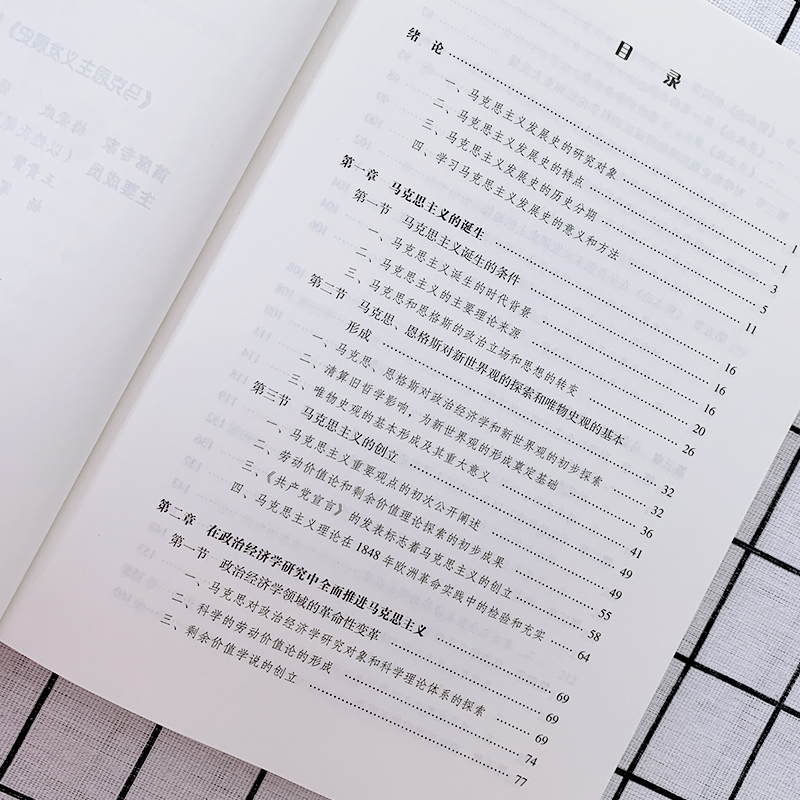 目 录
绪 论 …… 1
一、马克思主义发展史的研究对象 …… 1
二、马克思主义发展史的特点 …… 3
三、马克思主义发展史的历史分期 …… 5
四、学习马克思主义发展史的意义和方法 …… 11
第一章 马克思主义的诞生 …… 16
第一节 马克思主义诞生的条件 …… 16
一、马克思主义诞生的时代背景 …… 16
二、马克思主义的主要理论来源 …… 20
三、马克思和恩格斯的政治立场和思想的转变 …… 26
第二节 马克思、恩格斯对新世界观的探索和唯物史观的基本
形成 …… 32
一、马克思、恩格斯对政治经济学和新世界观的初步探索 …… 32
二、清算旧哲学影响，为新世界观的形成奠定基础 …… 36
三、唯物史观的基本形成及其重大意义 …… 41
第三节 马克思主义的创立 …… 49
一、马克思主义重要观点的初次公开阐述 …… 49
二、劳动价值论和剩余价值理论探索的初步成果 …… 55
三、《共产党宣言》的发表标志着马克思主义的创立 …… 58
四、马克思主义理论在1848年欧洲革命实践中的检验和充实 …… 64
第二章 在政治经济学研究中全面推进马克思主义 …… 69
第一节 政治经济学领域的革命性变革 …… 69
一、马克思对政治经济学研究对象和科学理论体系的探索 …… 69
二、科学的劳动价值论的形成 …… 74
三、剩余价值学说的创立 …… 77